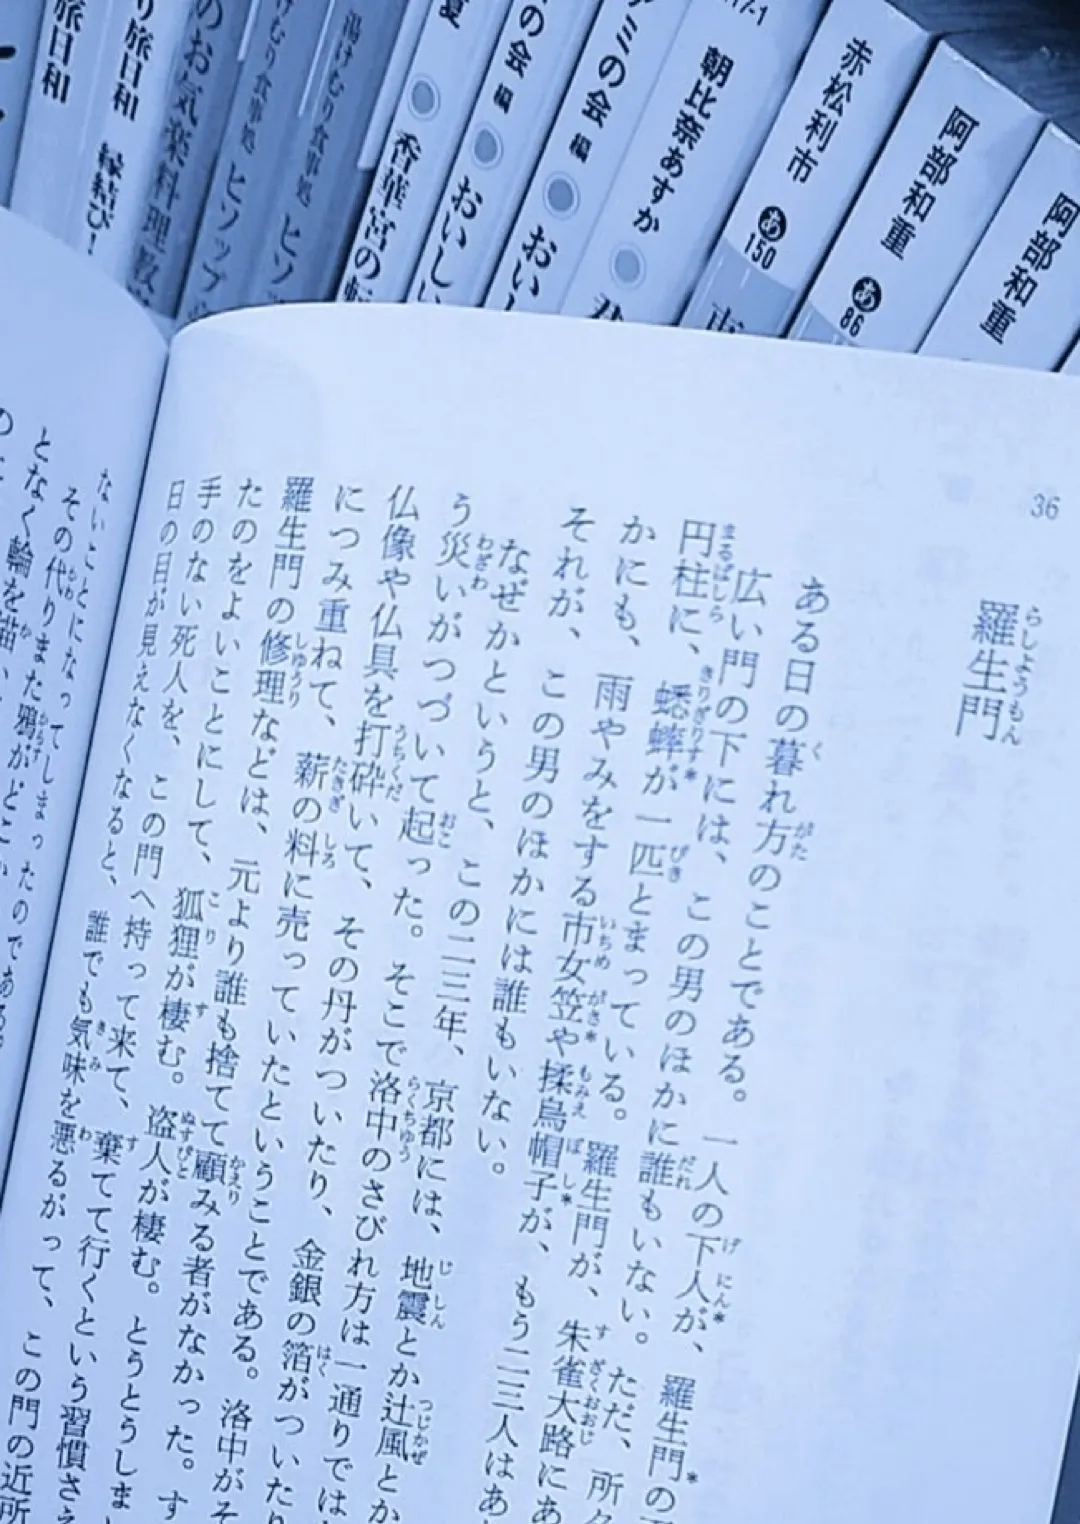 旅日和
り旅日和 縁結び!
のお気楽料理教
けむり食事処 ヒソップ
湯けむり食事処 ヒソ
夏 香華宮の転
の会 編 おいしい
アミの会 編 おいし
17-1 朝比奈あすか 君
赤松利市 あ150
阿部和重 あ86
阿部和重
36
羅生門
ある日の暮れ方のことである。一人の下人が、羅生門の
広い門の下には、この男のほかに誰もいない。ただ、所々
円柱に、蟋蟀が一匹とまっている。羅生門が、朱雀大路にあ
かにも、雨やみをする市女笠や揉烏帽子が、もう二三人はあ
それが、この男のほかには誰もいない。
なぜかというと、この二三年、京都には、地震とか辻風とか
う災いがつづいて起った。そこで洛中のさびれ方は一通りでは
仏像や仏具を打砕いて、その丹がついたり、金銀の箔がついたり
につみ重ねて、薪の料に売っていたということである。洛中がそ
羅生門の修理などは、元より誰も捨てて顧みる者がなかった。す
たのをよいことにして、狐狸が棲む。盗人が棲む。とうとうしま
手のない死人を、この門へ持って来て、棄てて行くという習慣さえ
日の目が見えなくなると、誰でも気味を悪るがって、この門の近所
ないことになってしまったのである。
その代りまた鴉がどこか
となく輪を描い